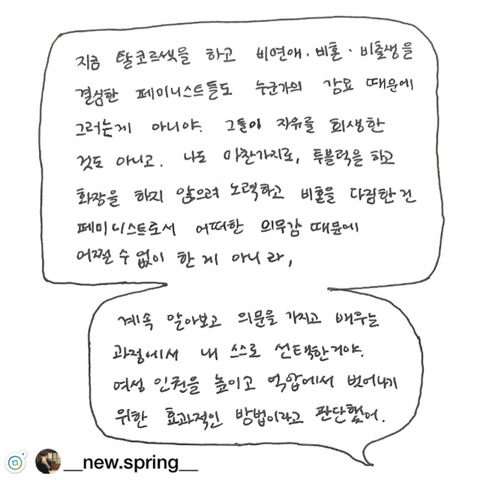 지금 탈코르셋을 하고 비연애·비혼·비출생을
결심한 페미니스트들도 누군가의 강요 때문에
그러는게 아니야. 그들이 자유를 희생한
것도 아니고. 나도 마찬가지로, 투블럭을 하고
화장을 하지 않으려 노력하고 비혼을 다짐한 건
페미니스트로서 어떠한 의무감 때문에
어쩔 수 없이 한 게 아니라,
계속 알아보고 의문을 가지고 배우는
과정에서 내 스스로 선택한거야.
여성 인권을 높이고 억압에서 벗어나기
위한 효과적인 방법이라고 판단했어.
__new.spring__